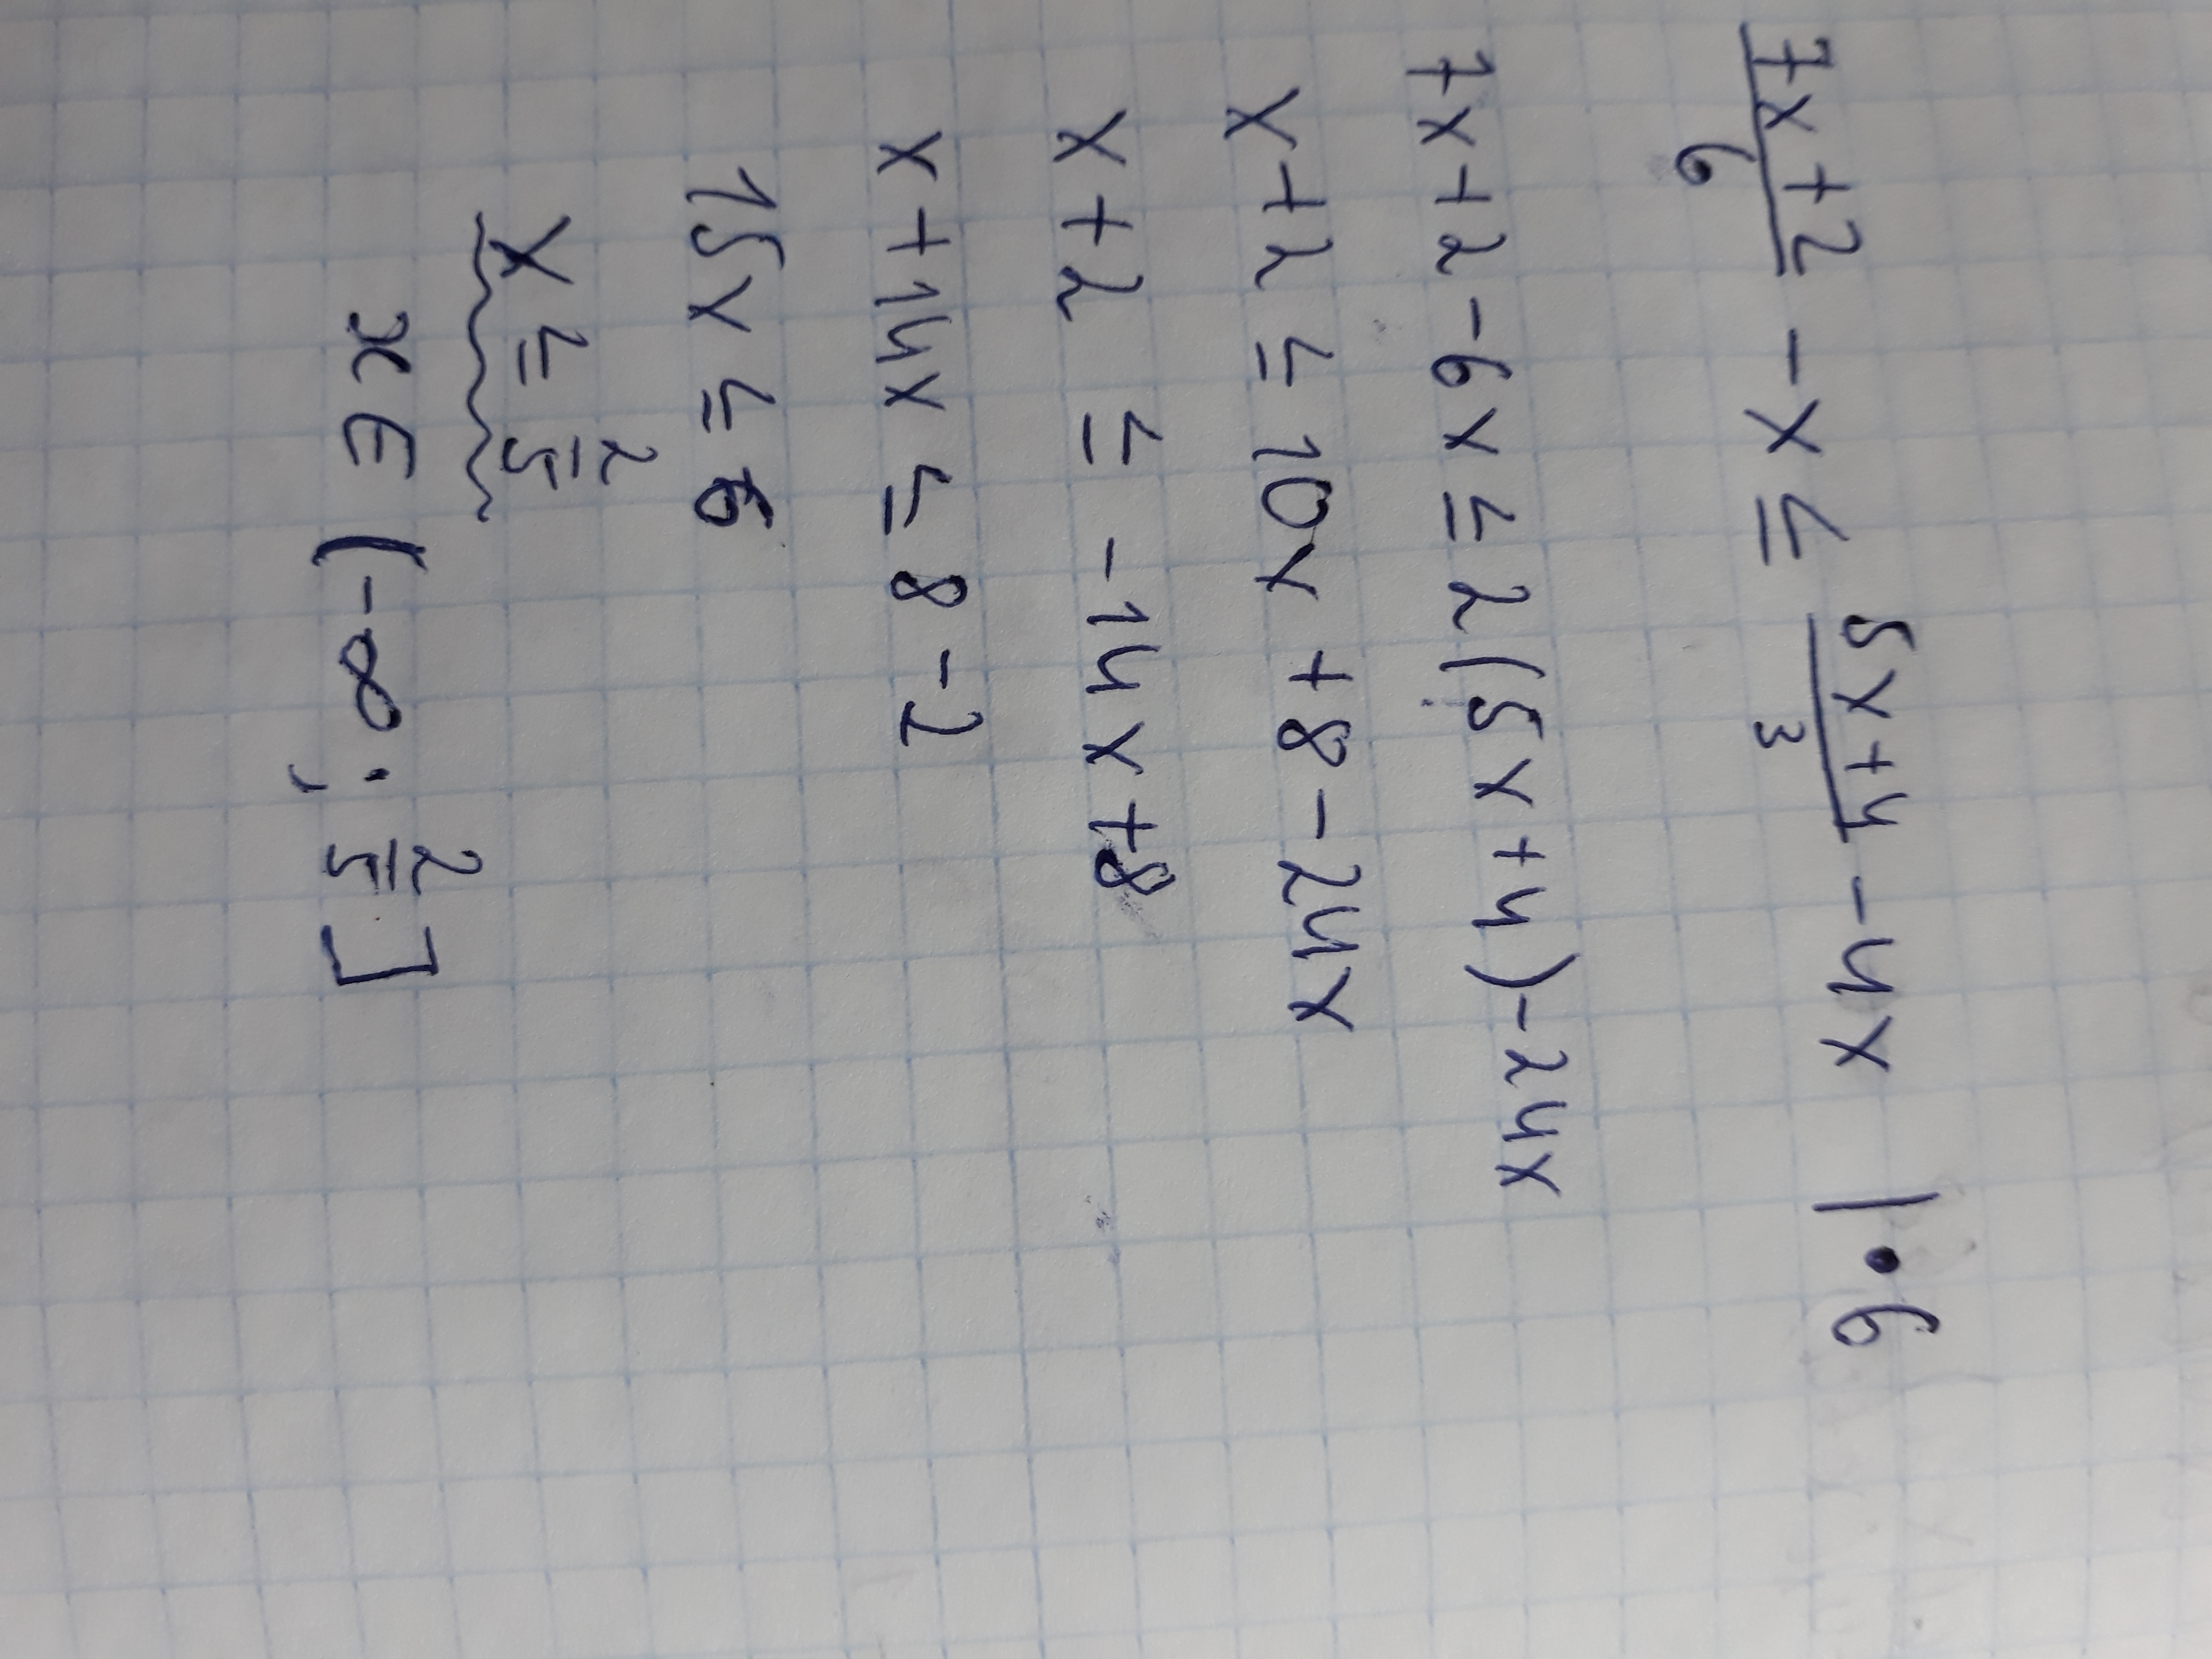 (7x+2)/6 - x ≤ (5x+4)/3 - 4x | • 6
7x+2-6x ≤ 2(5x+4)-24x
x+2 ≤ 10x+8-24x
x+2 ≤ -14x+8
x+14x ≤ 8-2
15x ≤ 6
x ≤ 2/5
x ∈ (-∞; 2/5]